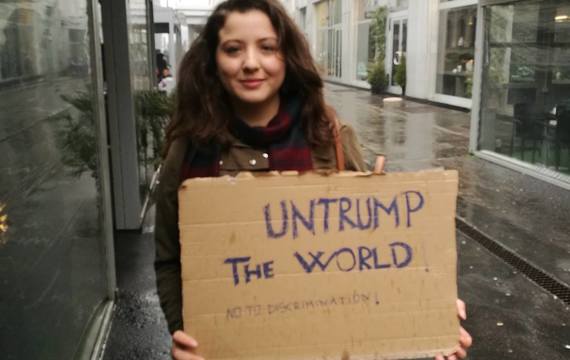 UNTRUMP
THE WORLD!
NO TO DISCRIMINATION!